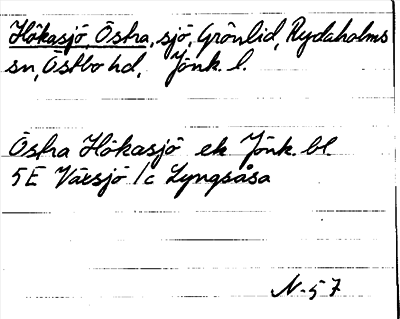 Hökasjö, Östra, sjö, Grönlid, Rydaholms
sn, Östbo hd, Jönk. l.
Östra Hökasjö ek Jönk. bl.
5E Växsjö 1c Lyngsåsa
N-57